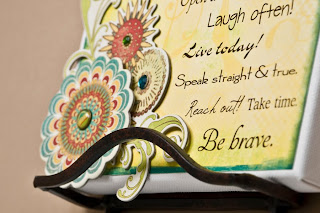 Laugh often!
Live today!
Speak straight & true.
Reach out! Take time.
Be brave.